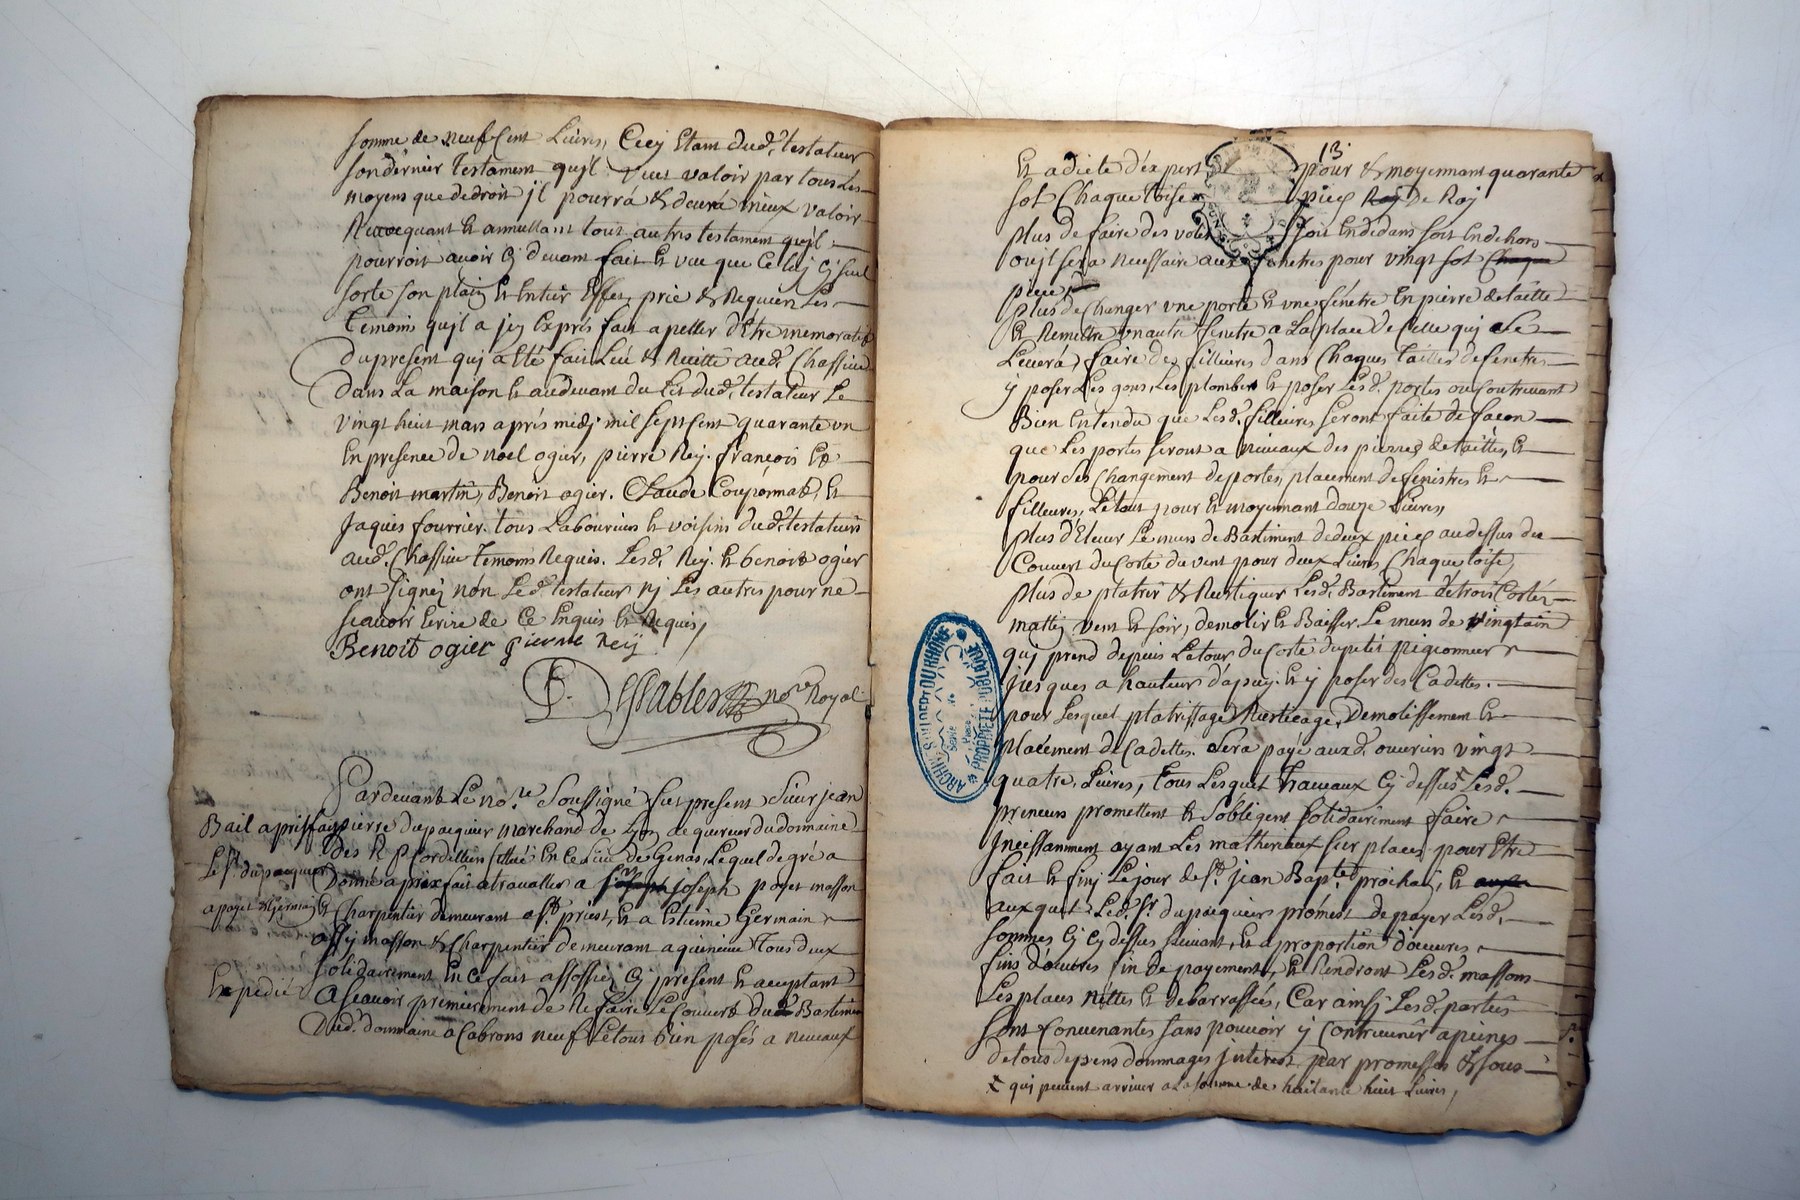 somme de neuf Cent Livres, Cecy Etant dud. testateur
son dernier testament qu'jl veut valoir par tous Les
moyens que de droit jl pourrá & devra mieux valoir
Revocquant Et annullant tout autres testament qu'jl
pourroit avoir cj devant fait Et vue que Ce luj cj seul
sorte son plain Et Entier Effet, prie & Requien Les
temoins qu'jl a jcy Exprés fait apeller d'Etre memoratif
du present quj a Eté fait Leu & Recitté aud. Chassieu
dans La maison Et audevant du Lit dud. testateur Le
vingt heut mars aprés midj mil sept Cent quarante un
En presence de noel ogier, pierre Rey. françois Et
Benoit martin, Benoit ogier. Claude Couponnat, Et
Jaques fourrier. tous Laboureurs Et voisins dud. testateurs
aud. Chassieu temoins Requis. Lesd. Rey. Et benoit ogier
ont signéj non Led. testateur nj Les autres pour ne
scavoir Ecrire de Ce Enquis Et Requis,
Benoit ogier pierre Reÿ
Desablesz no.re Royal
Pardevant Le no.re soussigné fut present sieur jean
pierre dupacquier marchand de Lyon acquereur du domaine
des R P Cordelliers sittué En Ce Lieu de Genas, Lequel de gré a
Donné a prix fait a travaller a joseph poyet masson
Et Charpentier demeurant a St. priest, Et a Estienne Germain
assy masson & Charpentier demeurant a quincieu tous deux
solidairement En ce fait associez cj present Et acceptant
Ascavoir premierement de Refaire Le Couvert dud. Bastiment
Dud. domaine a Cabrons neuf Le tout bien posés a niveaux
Bail a priffay
Le sr. dupacquier
a poyet & germain
Expedié
13.
Et a diete d'expert pour & moyennant quarante
sol Chaque toise pied Roy De Roy
plus de faire des volet soit Endedans soit Endehors
ou jl sera necessaire aux fenetres pour vingt sol Chaque
piece
plus de Changer une porte Et une fénétre En pierre de taille
Et Remettre un autre fenetre a La place de Celle quj se
Levera, faire des fillieures dans Chaques tailles de fenetres
y poser Les gons, Les plomber Et poser Lesd. portes ou Contrevant
Bien Entendu que Lesd. fillieures seront faite de facon
que Les portes seront a niveaux des pierres de tailles, Et
pour Les Changement de portes, placement de fenistres Et
fillieures, Le tout pour Et moyennant douze Livres,
plus d'Elever Le murs de Bastiment de deux pied au dessus du
Couvert du Coste du vent pour deux Livres Chaque toise,
plus de platrir & Rustiquer Lesd. Bastiment de trois Cortéz
mattin vent Et soir, demolir Et Baisser Le murs de vingtain
quj prend depuis La tour du Coste du petit pigeonnier
jusques a hauteur d'apuy. Et y poser des Cadettes.
pour Lesquel platrissage, Rusticage, Demolissement Et
placement de Cadettes. sera payé auxd. ouvriers vingt
quatre Livres, tous Lesquet travaux cj dessus Lesd.
preneurs promettent Et s'obligent solidairement faire
jncessamment ayant Les matherieux sur place, pour Etre
fait Et finj Le jour de St. jean Bapte. prochain, Et
auxquet Led. sr. dupacquier promést de payer Lesd.
sommes cj cy dessus suivant, Et a proportion d'oeuvres
fins d'oeuvres fin de payement, Et Rendront Lesd. massons
Les places néttes Et debarrassées, Car ainsj Lesd. parties
sont Convenantes sans pouvoir y Contrevenir a peines
de tous depens dommages jnterest par promesses & sous
x quj peuvent arriver a La somme de huitante huit Livres,
ARCHIVES DU DEPT DU RHONE
PROPRIÉTÉ PUBLIQUE